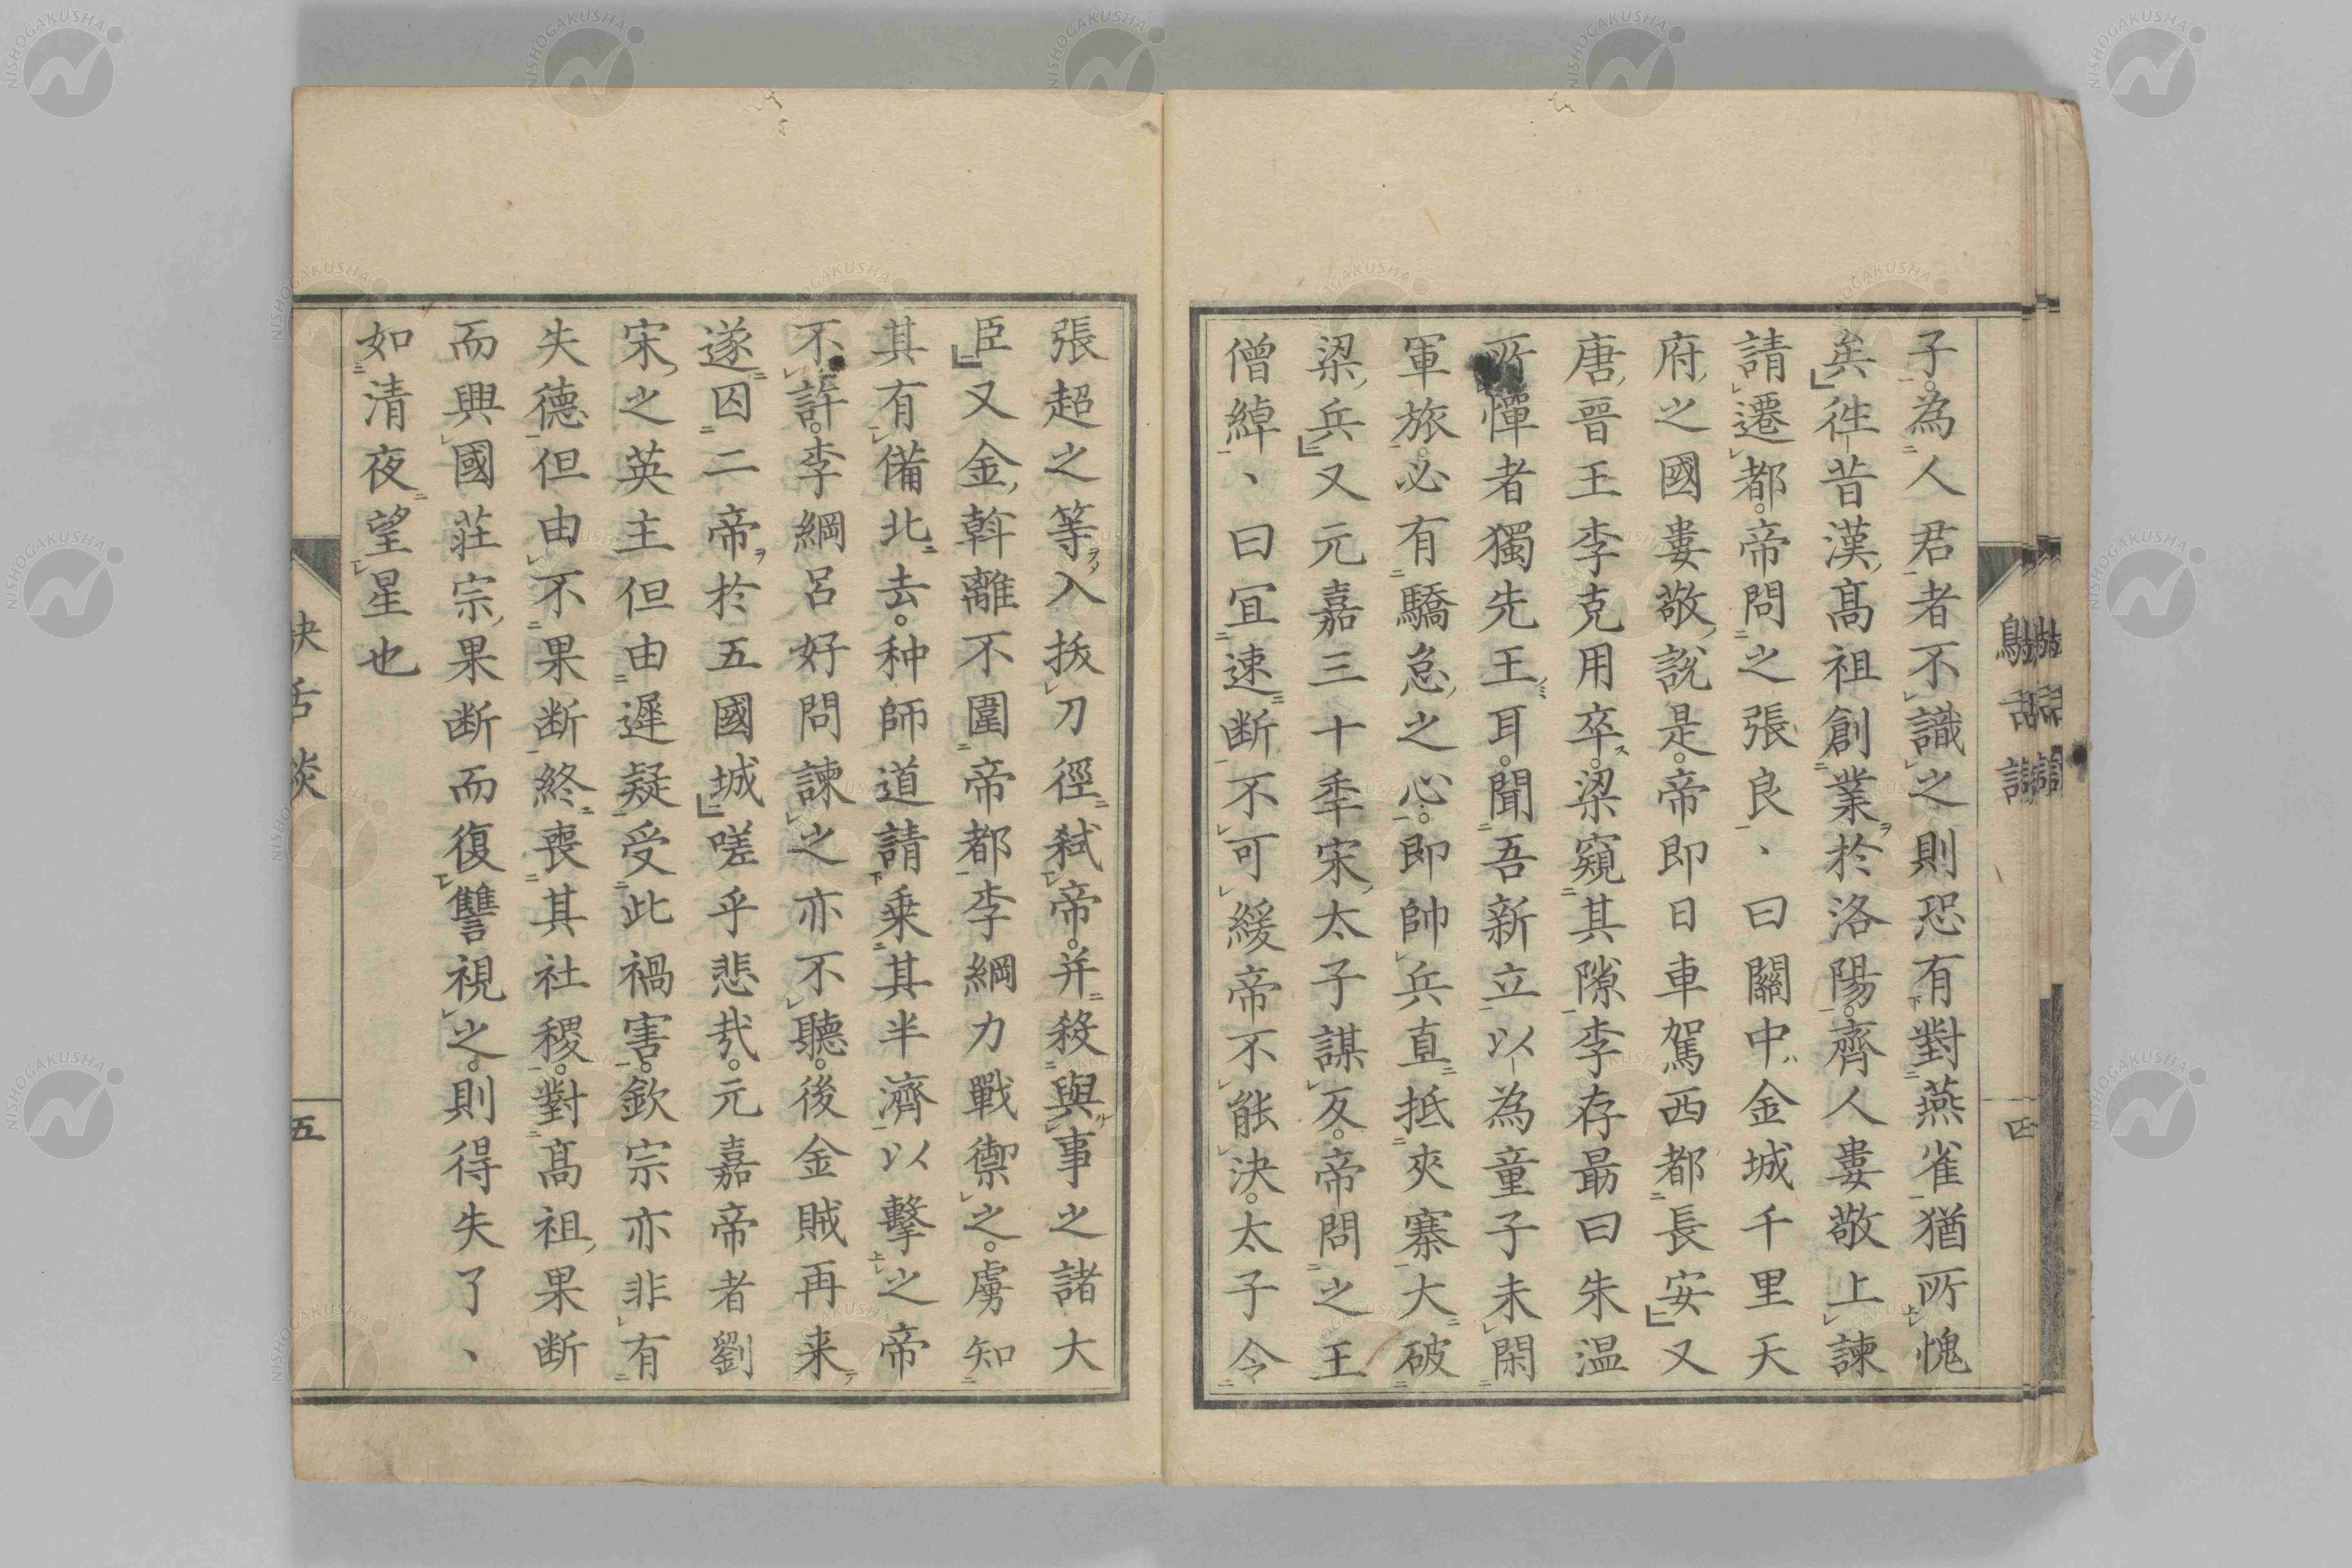 子。為人君者不識之則恐有對燕雀猶所愧
矣往昔漢高祖創業於洛陽。齊人婁敬上諫
請遷都。帝問之張良、曰關中金城千里天
府之國婁敬說是。帝即日車駕西都長安又
唐晉王李克用卒。梁窺其隙李存最曰朱温
所憚者獨先王耳。聞吾新立以為童子未閑
軍旅。必有驕怠之心。即帥兵直抵夾寨大破
梁兵又元嘉三十秊宋太子謀反。帝問之王
僧綽、曰宜速断不可緩帝不能決。太子令
張超之等入拔刀徑弑帝。并殺與事之諸大
臣又金斡離不圍帝都李綱力戰禦之。虜知
其有備北去。种師道請乗其半濟以擊之帝
不許。李綱呂好問諫之亦不聽。後金賊再来
遂囚二帝於五國城嗟乎悲㢤。元嘉帝者劉
宋之英主但由遲疑受此禍害。欽宗亦非有
失德但由不果断終喪其社稷。對高祖果断
而興國荘宗果断而復讐視之。則得失了、
如清夜望星也
鴃舌談
四
五
NISHOGAKUSHA